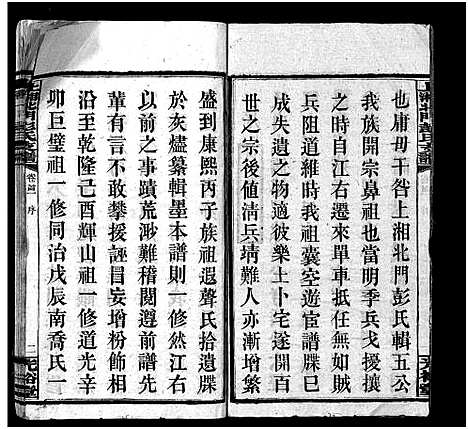 也庸毋干咎上湘北門彭氏輯五公
我族開宗鼻祖也當明季兵戈擾攘
之時段自江右遷來單車抵任前明
兵阻道維時我祖囊空遊宦譜牒具
成失遺之物焉於彼樂土卜宅遂開百
世之宗後值清兵靖難人亦漸增繁
盛到康熙丙子族祖遐聲氏拾遺牒
於灰燼纂輯墨本譜則一修然右江
以前之事蹟荒渺難稽閱遵前譜先
輩有言不敢攀援誣冒妄增粉飾倘
沿至乾隆己酉輝山祖一修道光辛
卯巨璧祖一修同治戊辰南喬氏一
上湘北門彭氏支譜
卷首 序
二
光裕堂